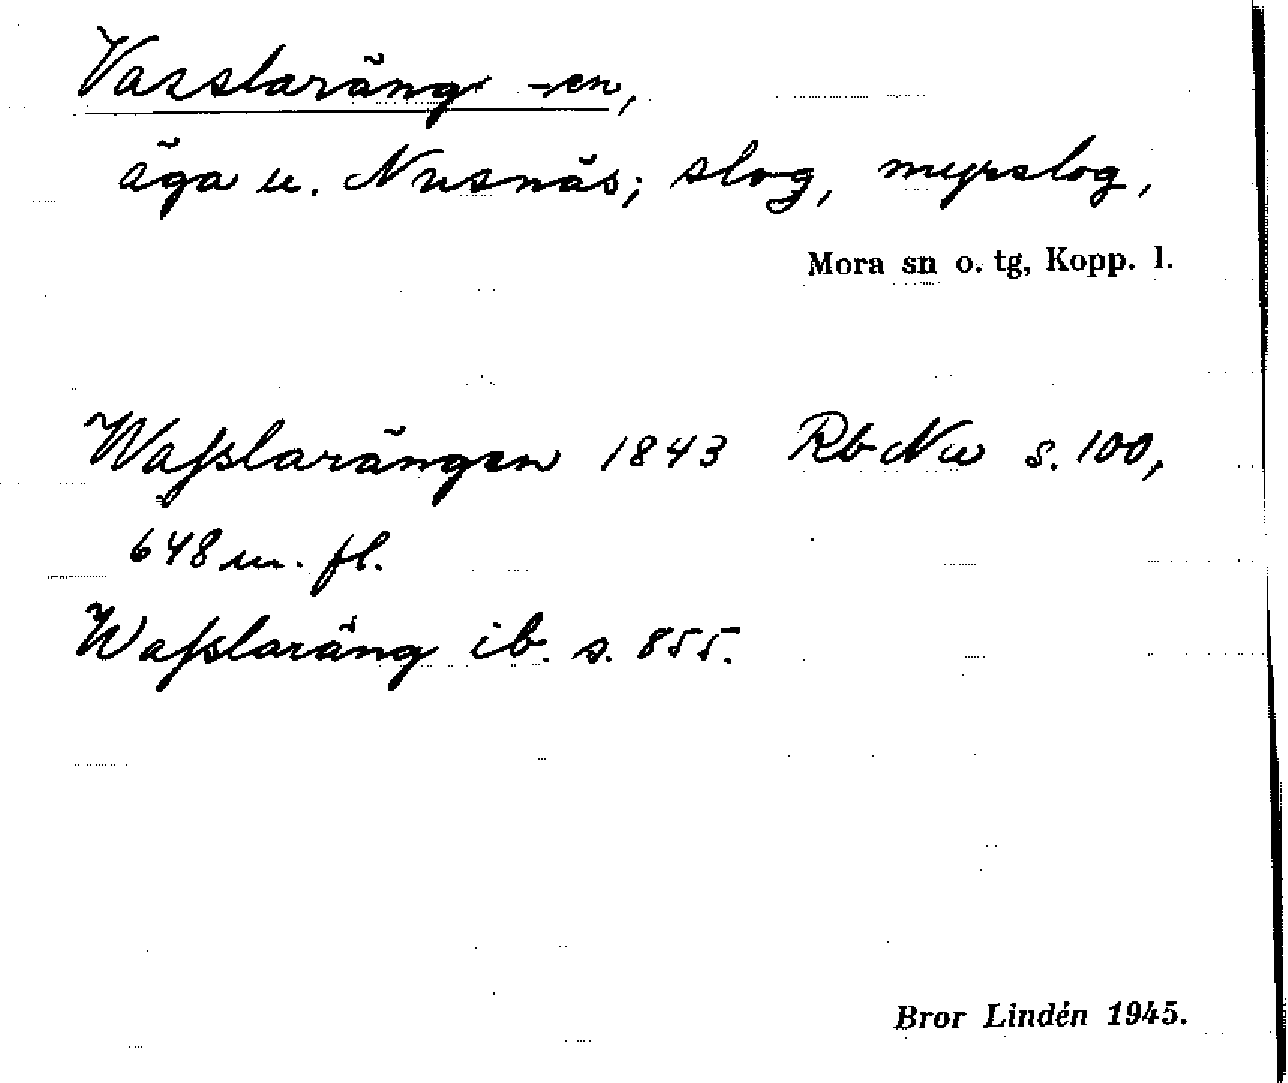 Vasslaräng -en,
äga u. Nusnäs; slog, myrslog,
Mora sn o. tg, Kopp. l.
Waſslarängen 1843 RbNu s. 100,
648 m. fl.
Waſslaräng ib. s. 855.
Bror Lindén 1945.